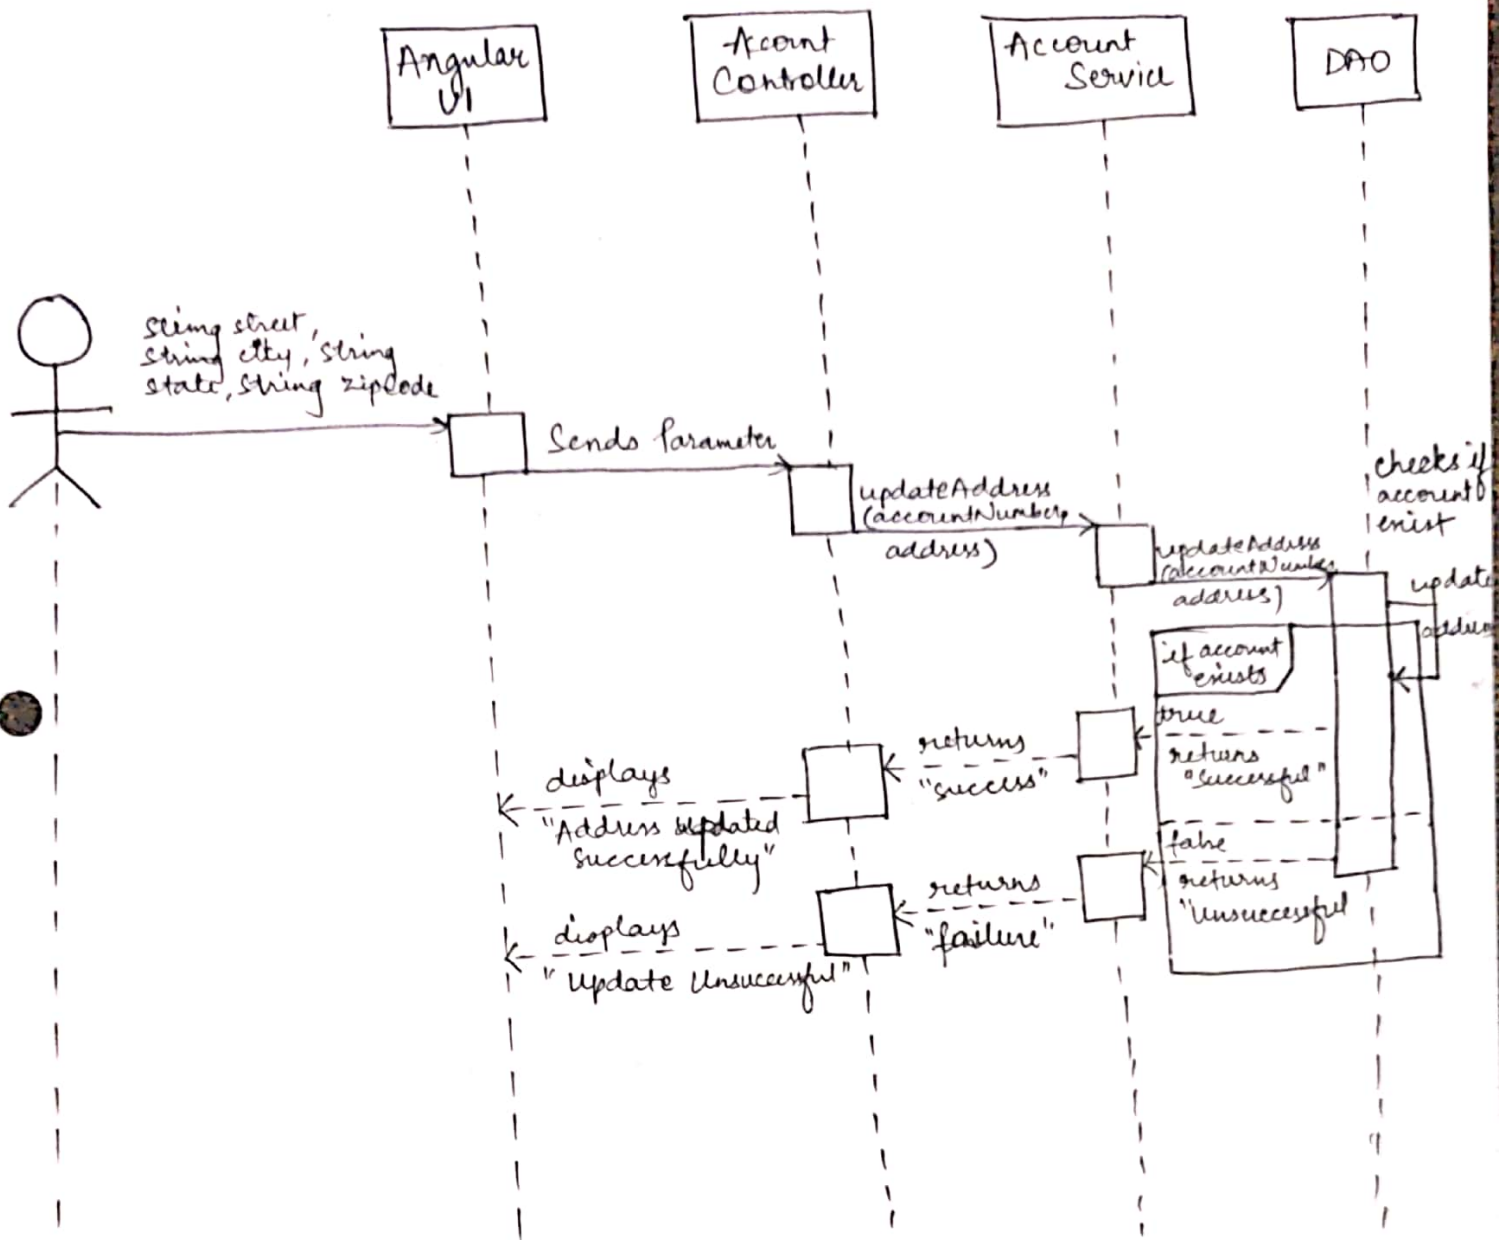 Angular
UI
Acount
Controller
Account
Service
DAO
string street,
string city, string
state, string zipCode
Sends Parameter
updateAddress
(accountNumber,
address)
updateAddress
(accountNumber
address)
checks if
account
exist
update
if account
exists
true
returns
"Successful"
returns
"success"
displays
"Address updated
Successfully"
false
returns
"Unsuccessful
returns
"failure"
displays
"Update Unsuccessful"